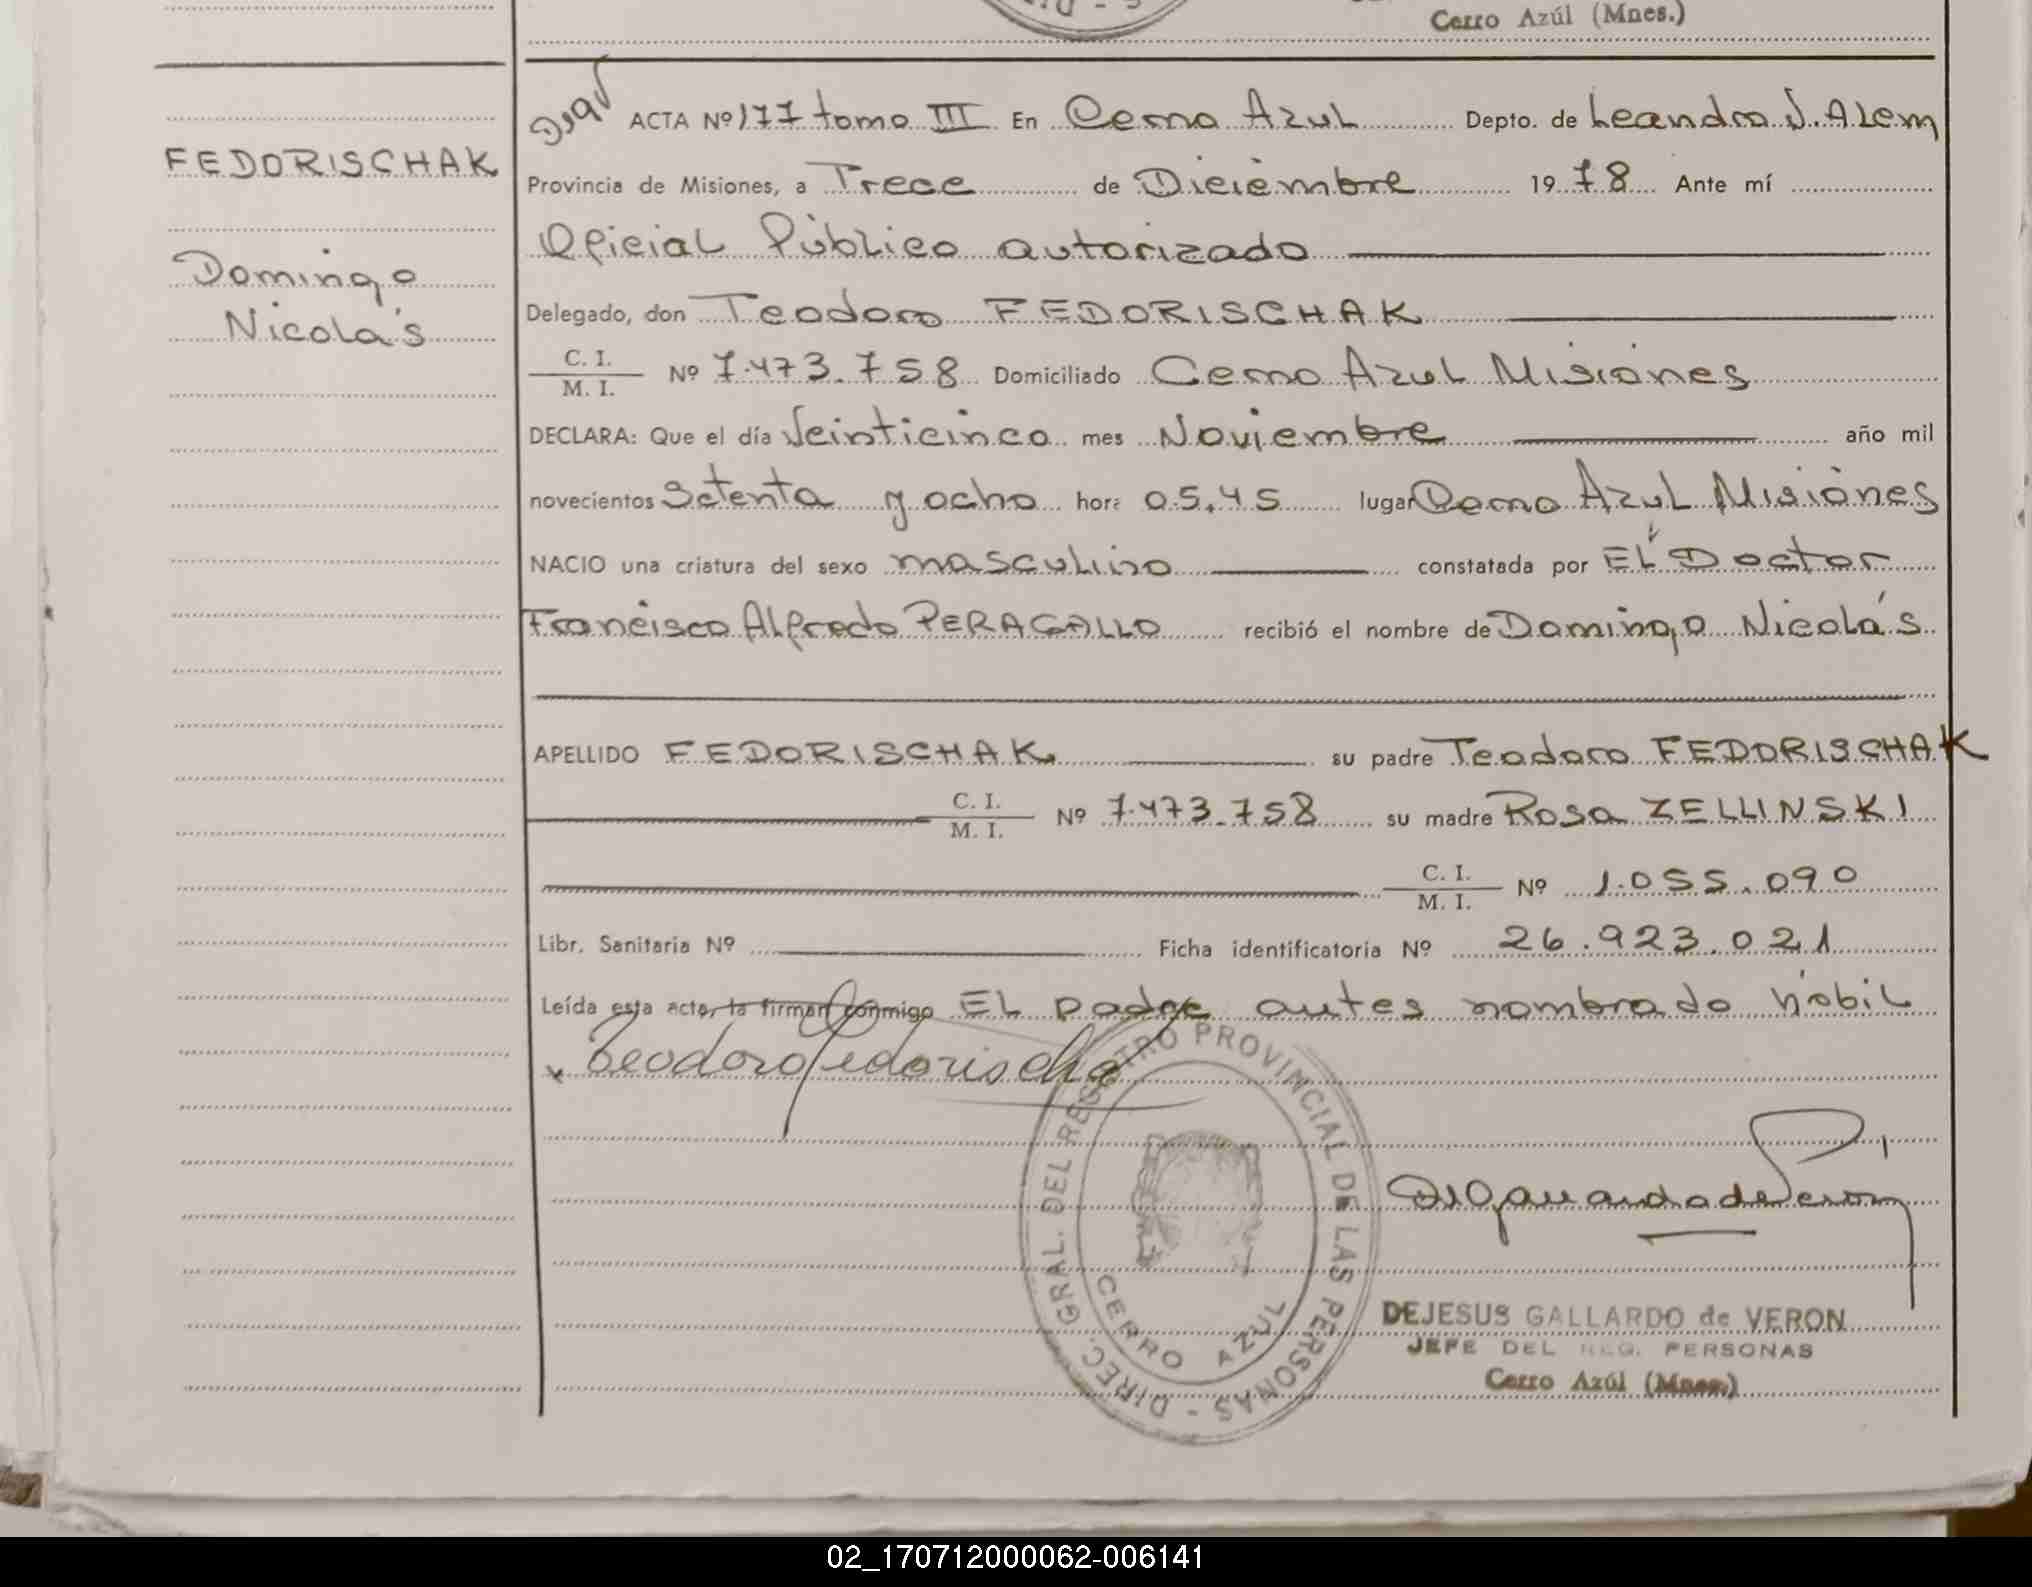 Cerro Azúl (Mnes.)
ACTA Nº 177 tomo III En Cerro Azul Depto. de Leandro N. Alem
FEDORISCHAK
Provincia de Misiones, a Trece de Diciembre 1978 Ante mí
Oficial Público autorizado
Domingo
Nicolás
Delegado, don Teodoro FEDORISCHAK
C. I.
M. I. Nº 7.473.758 Domiciliado Cerro Azul Misiones
DECLARA: Que el día Veinticinco mes Noviembre año mil
novecientos Setenta y ocho hora 05,45 lugar Cerro Azul Misiones
NACIO una criatura del sexo masculino constatada por El Doctor
Francisco Alfredo PERAGALLO recibió el nombre de Domingo Nicolás
APELLIDO FEDORISCHAK su padre Teodoro FEDORISCHAK
C. I.
M. I. Nº 7.473.758 su madre Rosa ZELLINSKI
C. I.
M. I. Nº 1.055.090
Libr. Sanitaria Nº Ficha identificatoria Nº 26.923.021
Leída esta acta, la firman conmigo El padre antes nombrado hábil
Teodoro Fedorischak
DIREC. GRAL. DEL REGISTRO PROVINCIAL DE LAS PERSONAS -
CERRO AZUL
DEJESUS GALLARDO de VERON
JEFE DEL REG. PERSONAS
Cerro Azúl (Mnes.)
02_170712000062-006141